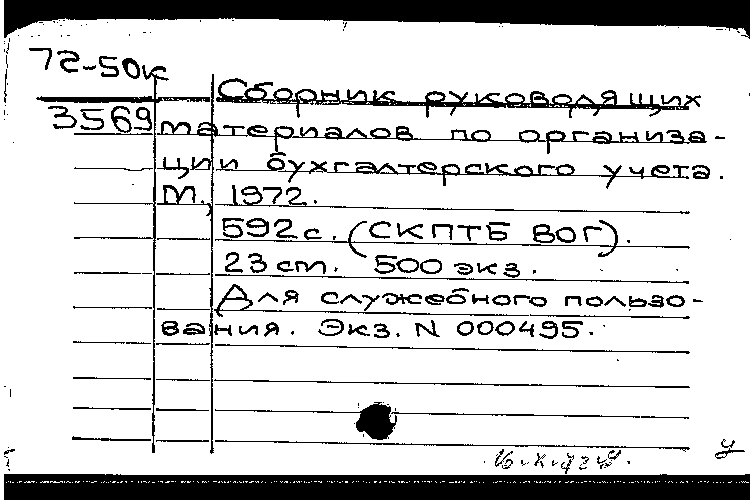 72-50к
Сборник руководящих
3569 материалов по организа-
ции бухгалтерского учета.
М., 1972.
592с. (СКПТБ ВОГ).
23 ст. 500 экз.
Для служебного пользо-
вания. Экз. N 000495.
у